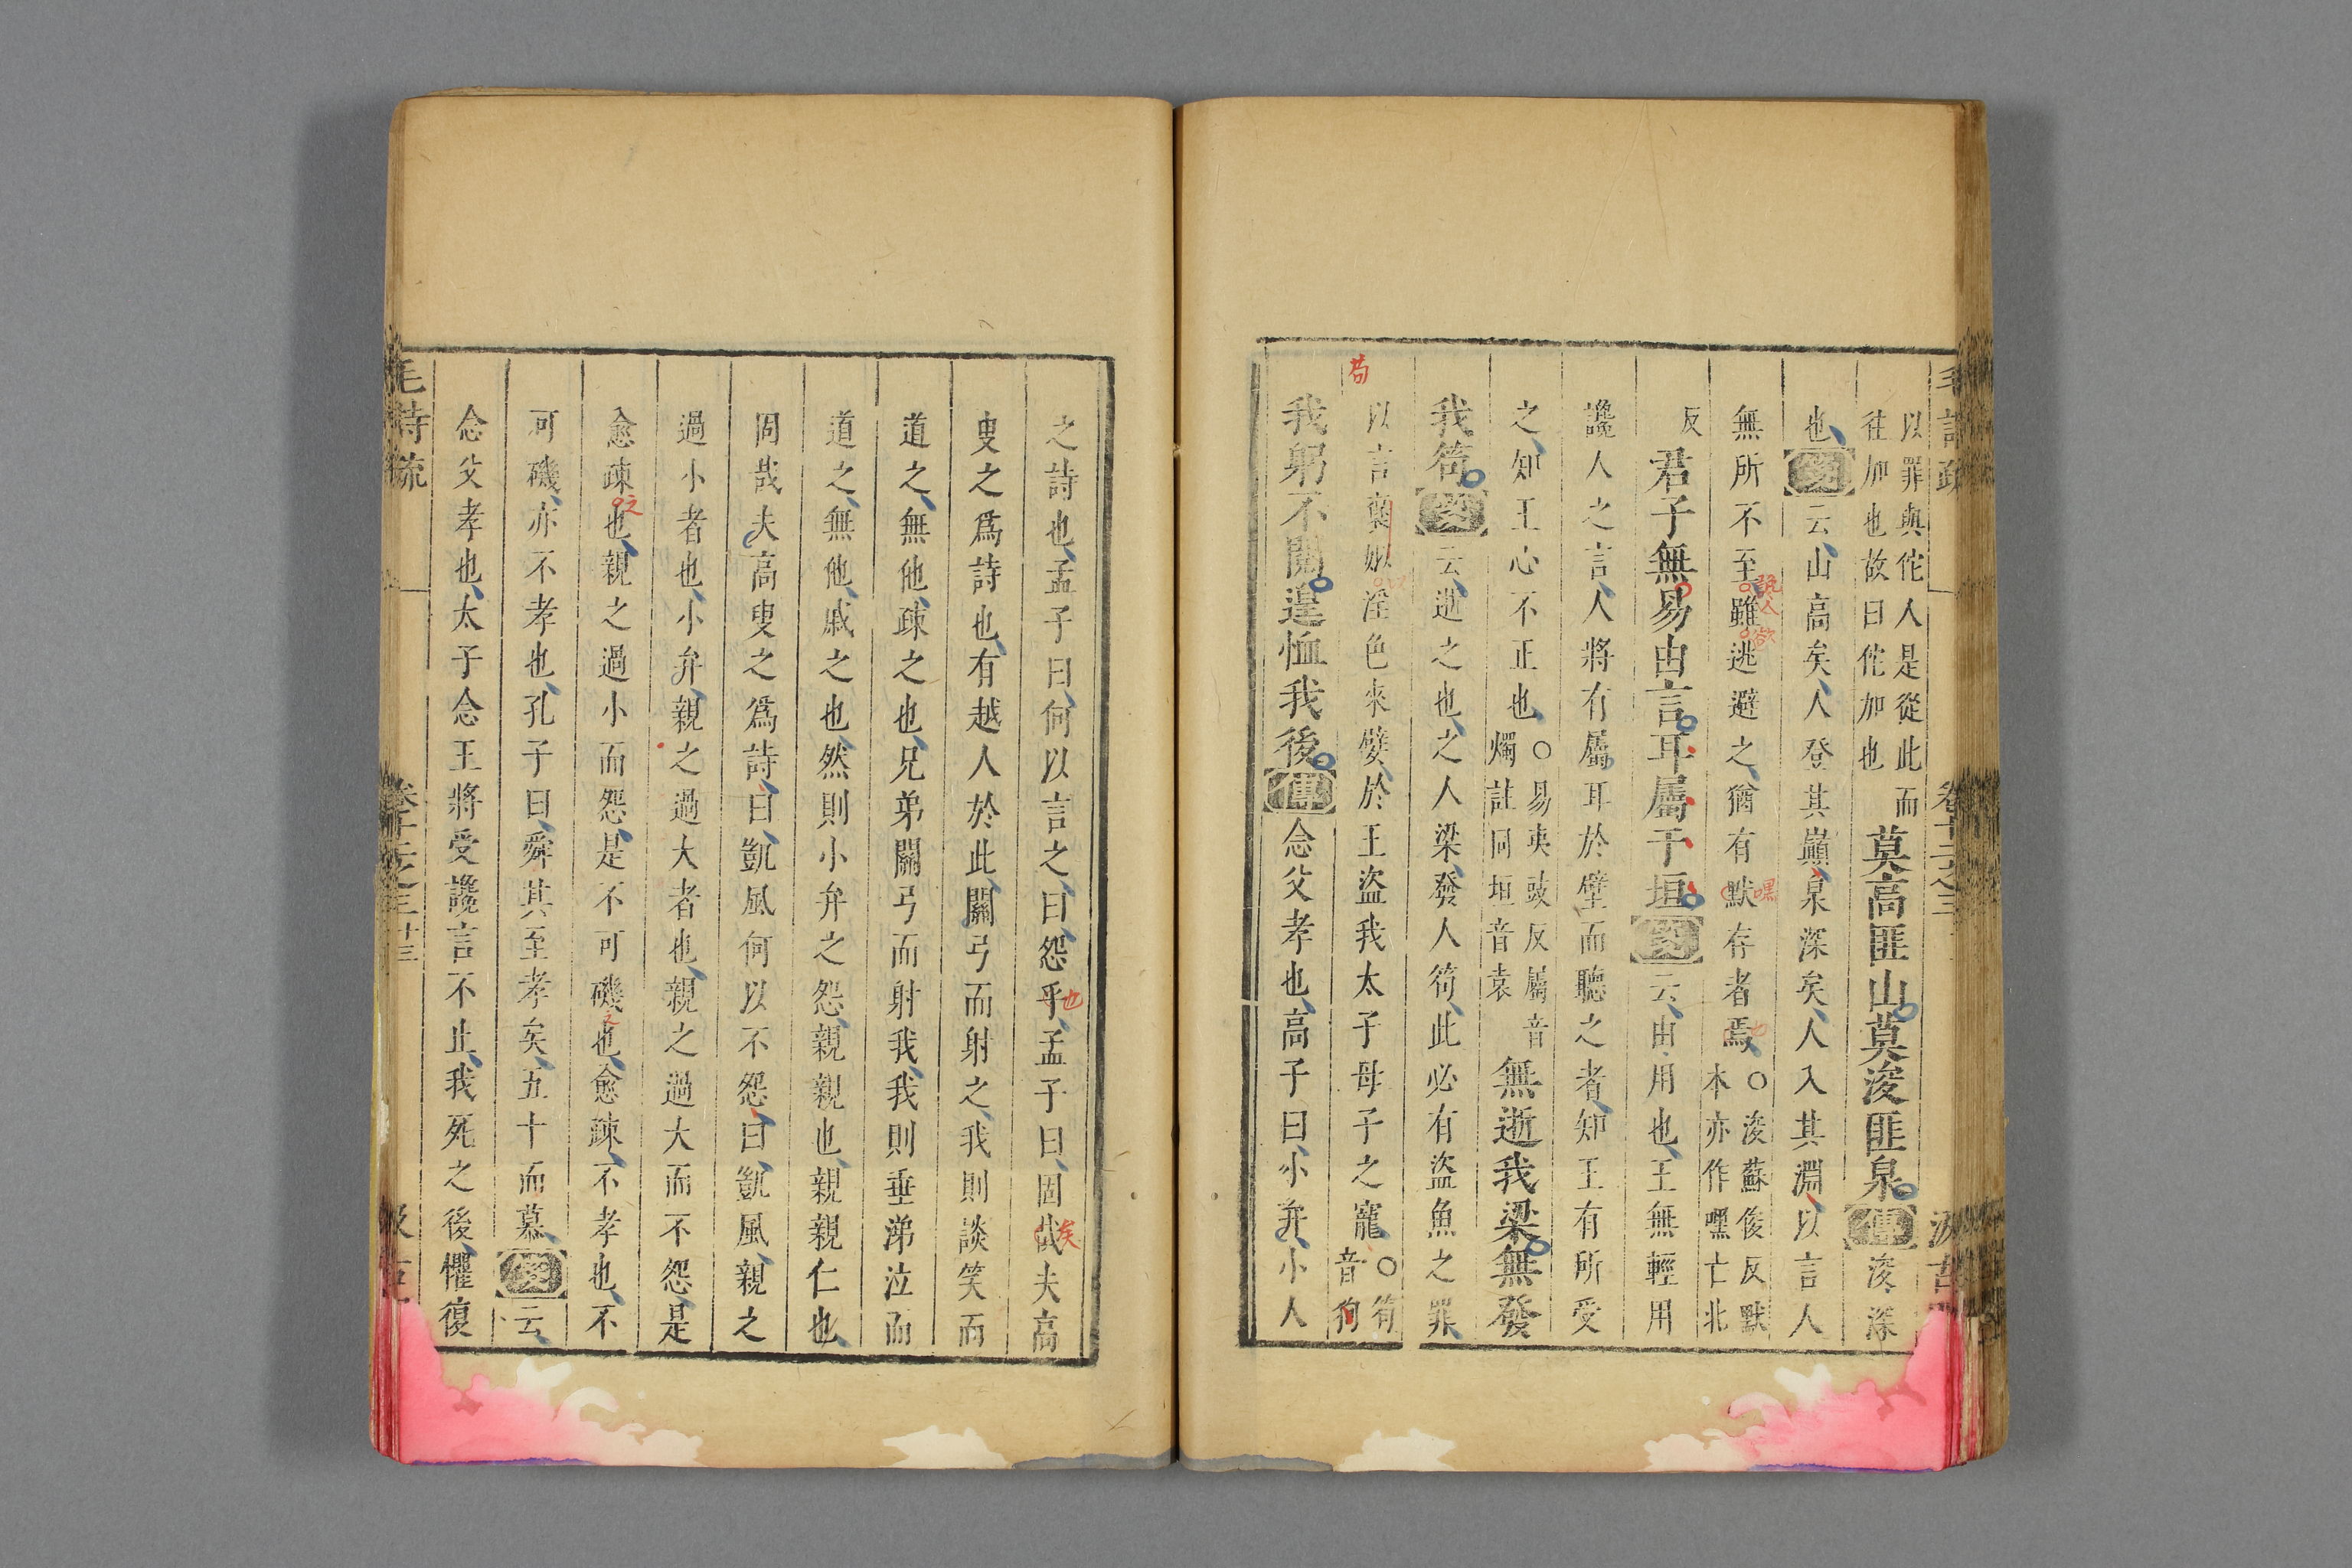 毛詩疏 卷十二之三 汲古
以罪與佗人是從此而
往加也故曰佗加也
莫高匪山莫浚匪泉傳浚深
也箋云山高矣人登其巔泉深矣人入其淵以言人
無所不至雖逃避之猶有默存者焉○浚蘇俊反默
本亦作嘿亡北
反
君子無易由言耳屬于垣箋云由用也王無輕用
讒人之言人將有屬耳於壁而聽之者知王有所受
之知王心不正也○易夷豉反屬音
燭註同垣音袁
無逝我梁無發
我笱箋云逝之也之人梁發人笱此必有盜魚之罪
以言褒姒淫色來嬖於王盜我太子母子之寵○笱
音狗
我躬不閱遑恤我後傳念父孝也高子曰小弁小人
苟
孰人
欲
嘿
也
之詩也孟子曰何以言之曰怨乎孟子曰固哉夫高
叟之爲詩也有越人於此關弓而射之我則談笑而
道之無他疎之也兄弟關弓而射我我則垂涕泣而
道之無他戚之也然則小弁之怨親親也親親仁也
固哉夫高叟之爲詩曰凱風何以不怨曰凱風親之
過小者也小弁親之過大者也親之過大而不怨是
愈疎也親之過小而怨是不可磯也愈疎不孝也不
可磯亦不孝也孔子曰舜其至孝矣五十而慕箋云
念父孝也太子念王將受讒言不止我死之後懼復
也
矣
之
之
毛詩疏 卷十二之三 廿三 汲古